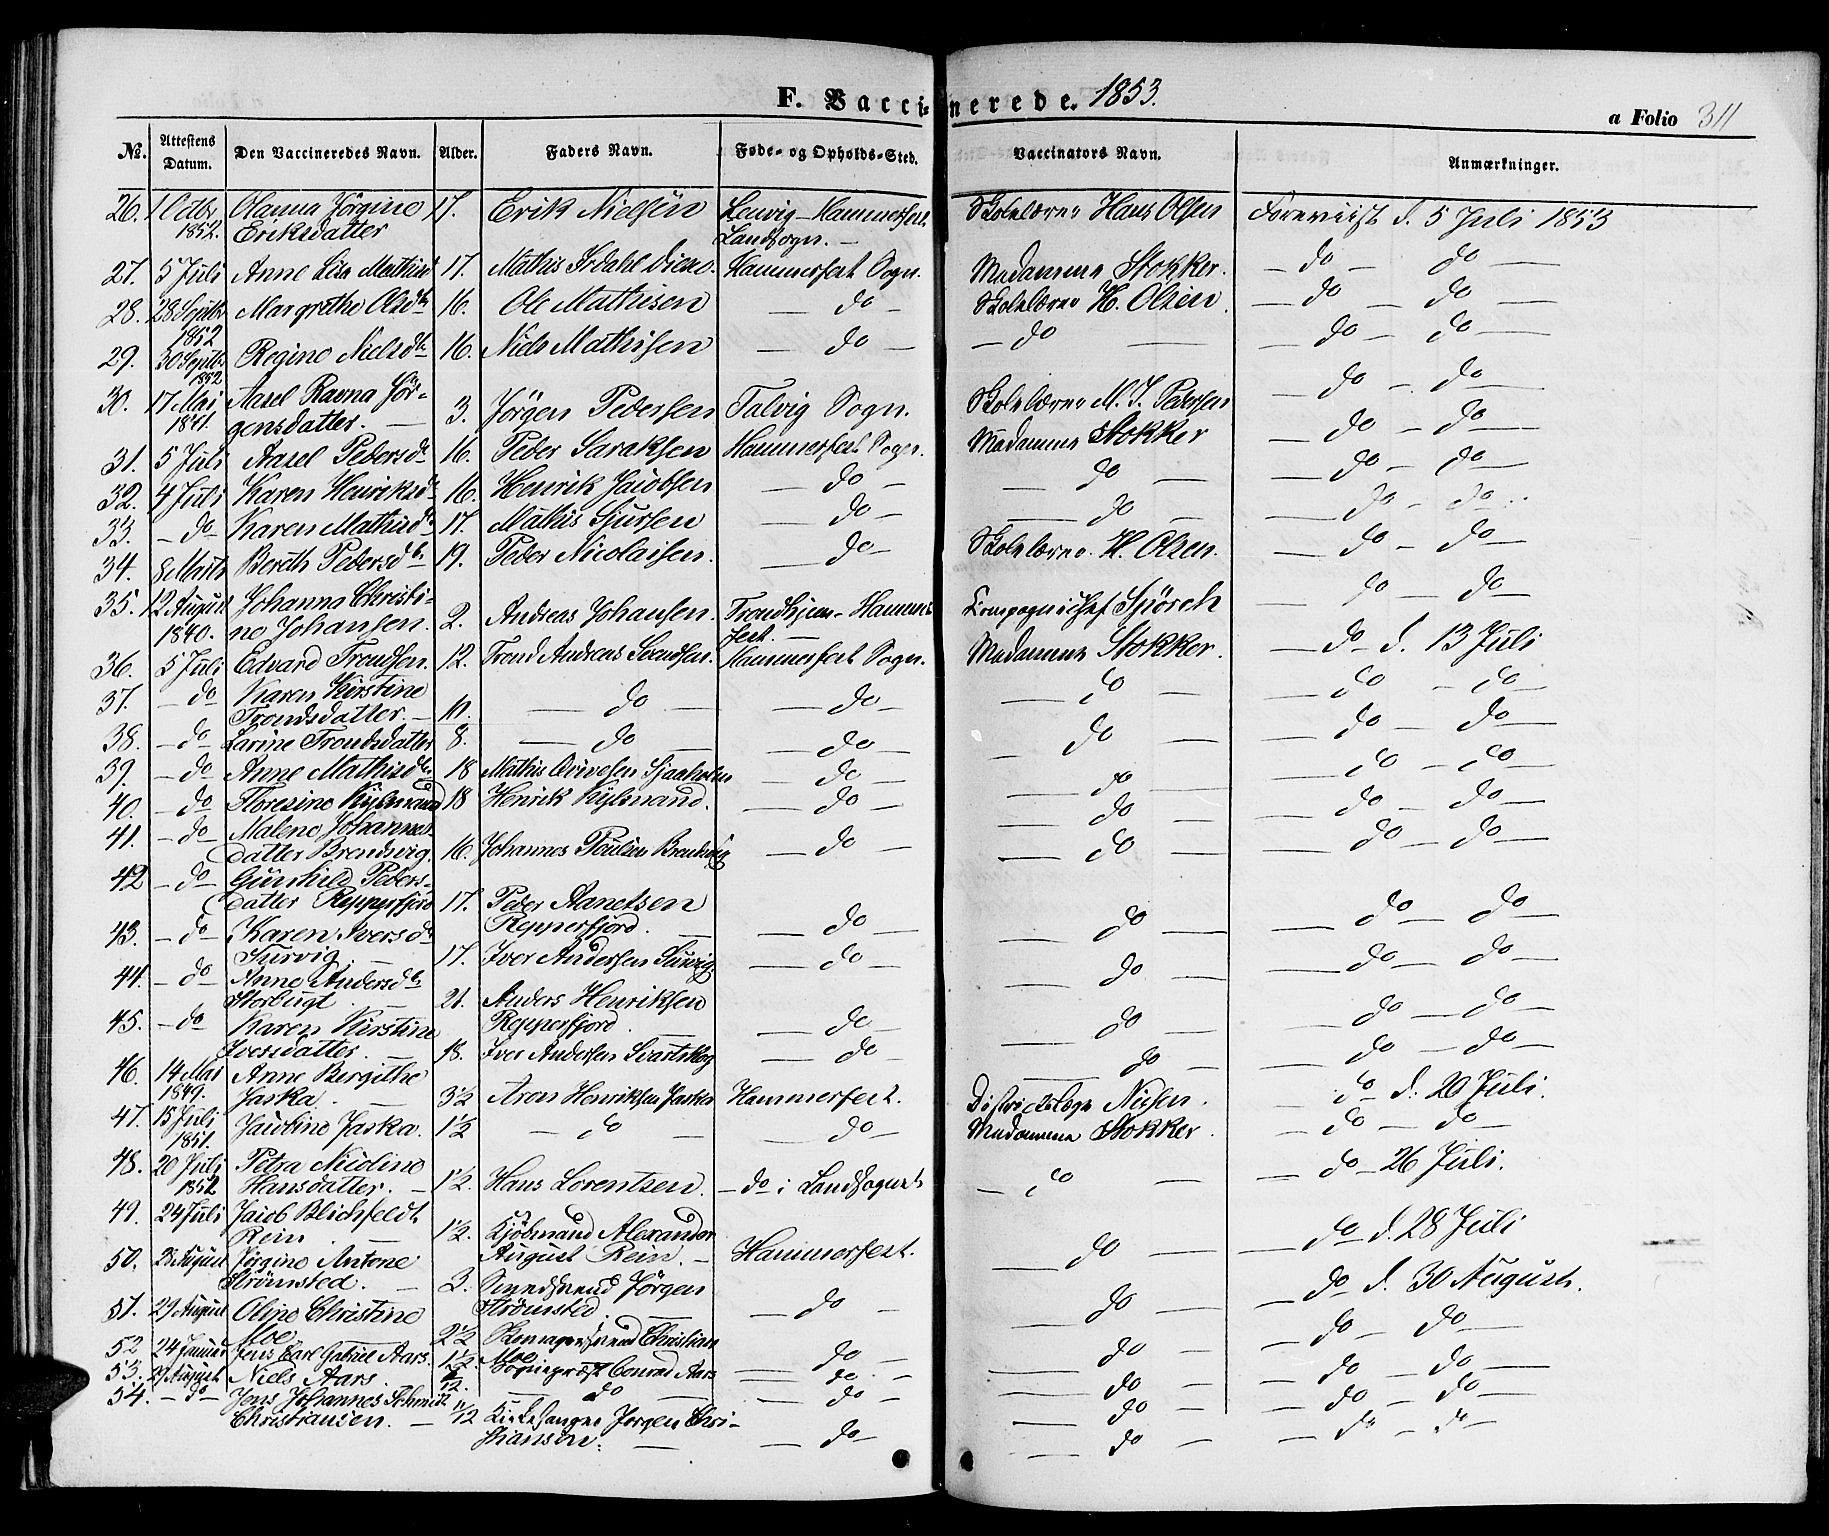 F. Vaccinerede. 1853.
a Folio 311
No. Attestens Datum. Den Vaccineredes Navn. Alder. Faders Navn. Føde- og Opholds-Sted. Vaccinators Navn. Anmærkninger.
26. 1 Octbr 1852. Olanna Jörgine Eriksdatter 17. Erik Nielsen Hammerfest Landsogn. Skolelærer Hans Olsen Foreviist d. 5 Juli 1853
27. 5 Juli Anne Lisa Mathisd 17. Mathis Hammerfest Sogn. Madamme Stokker. do do
28. 28 Septbr 1852 Margrethe Olsdtr 16. Ole Mathisen do Skolelærer H. Olsen. do do
29. 30 Septbr 1852 Regine Nielsdtr 16. Niels Mathisen do do do do
30. 17 Mai 1841. Aasel Ravna Jörgensdatter. 3. Jörgen Pedersen Talvig Sogn. Skolelærer M. J. Pedersen do do
31. 5 Juli Aasel Pedersd 16. Peder Saraksen Hammerfest Sogn. Madamme Stokker do do
32. 4 Juli Karen Henriksd 16. Henrik Jacobsen do do do do
33. do Karen Mathisd 17. Mathis Sjursen do do do do
34. 8 Marts Bereth Pedersdtr 19. Peder Nicolaisen. do Skolelærer H. Olsen. do do
35. 12 August 1840. Johanna Christine Johansen. 2. Andreas Johansen Trondhjem - Hammerfest. Compagnichef Spörck do do
36. 5 Juli Edvard Trondsen. 12. Trond Andreas Svendsen. Hammerfest Sogn. Madamme Stokker. do d. 13 Juli
37. do Karen Kirstine Trondsdatter. do do do do do
38. do Larine Trondsdatter 8. do do do do do
39. do Anne Mathisdtr 18 Mathis do do do do
40. do Floresine 18 Henrik do do do do
41. do Malene Johannesdatter Brendsvig. 16. Johannes Poulsen Brendsvig do do do do
42 do Gunhild Pedersdatter Repperfjord 17. Peder Repperfjord. do do do do
43. do Karen Iversd 17. Iver Andersen do do do do
44. do Anne Andersdtr Storbugt. 21. Anders Henriksen Repperfjord. do do do do
45. do Karen Kirstine Iversdatter. 18. Iver Andersen do do do do
46. 14 Mai 1849. Anne Bergithe Jaska. 3½ Aron Henriksen Jaska Hammerfest. Districtslæge do d. 20 Juli.
47. 15 Juli 1851. Jacobine Jaska. 1½ do do Madamme Stokker. do do
48. 20 Juli 1852 Petra Nicoline Hansdatter. 1½. Hans Lorentzen. do i Landsognet do do 26 Juli.
49. 24 Juli Jacob Blichfeldt Rein. 1½. Kjöbmand Alexander August Rein. Hammerfest. do do d. 28 Juli
50. 28 August Jörgine Antone Strömsted. 3. Smedsvend Jörgen Strömsted do do do d. 30 August.
51. 29 August Oline Christine Moe 2½ Skomagersvend Christian Moe do do do do
52 24 Januar Jens Carl Gabriel Aars. 1½. Sognepræst Conrad Aars do do do do
53. 29 August Niels Aars. do do do do do
54. do Jens Johannes Schmidt Christiansen. 11/12 Kirkesanger Jörgen Christiansen. do do do do